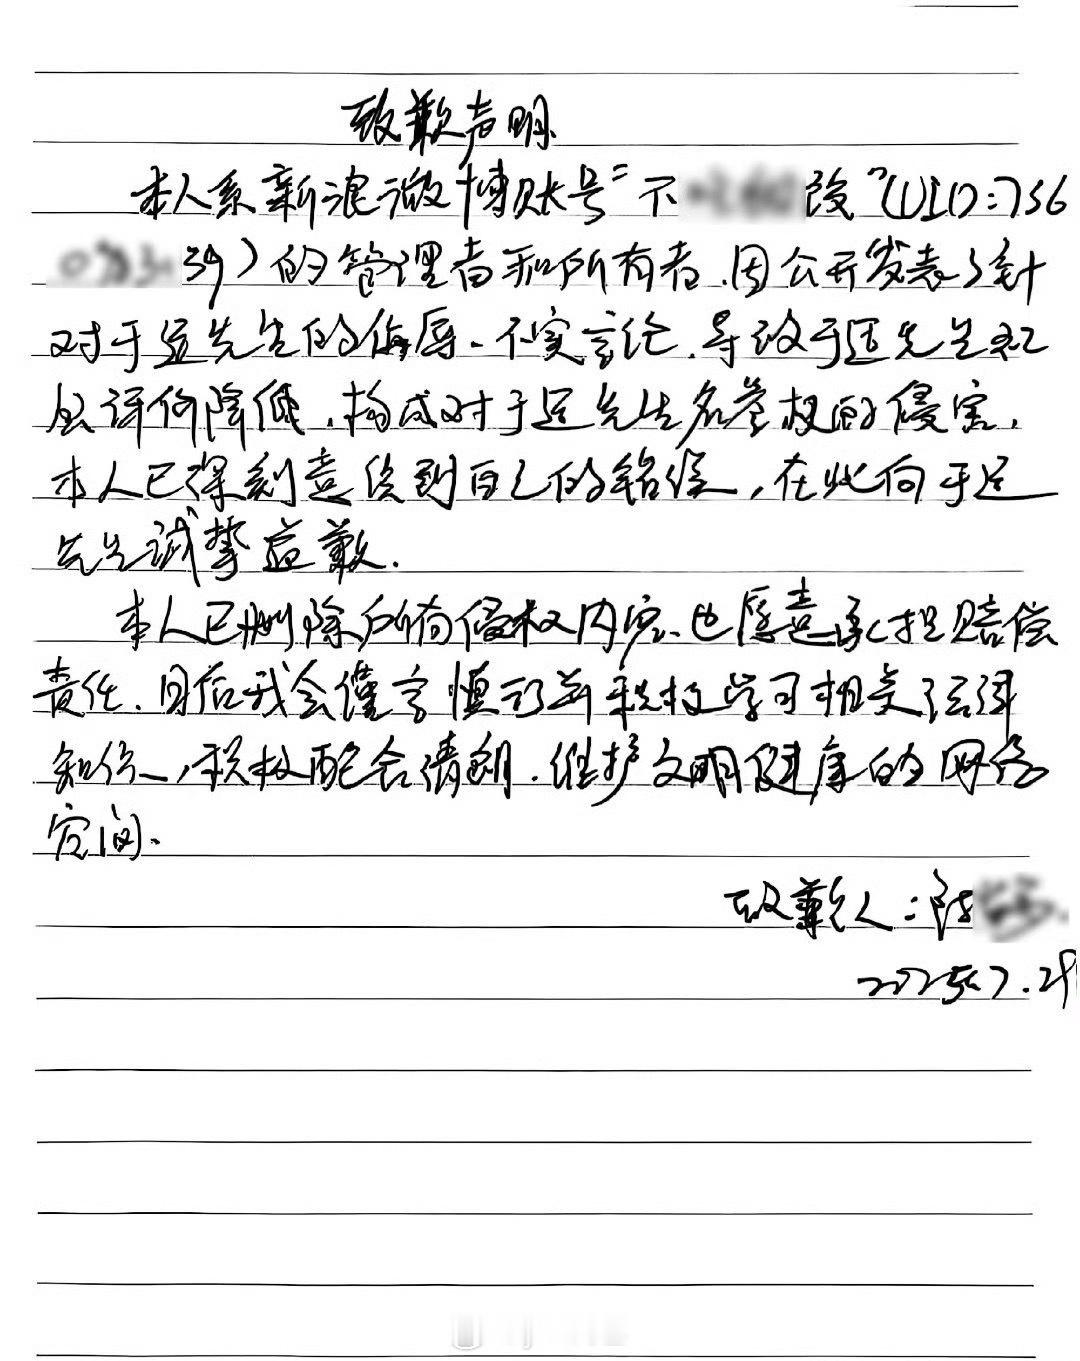 致歉声明
本人系新浪微博账号"不改"(UID:756
39)的管理者和所有者,因公开发表了针
对于适先生的侮辱、不实言论,导致于适先生社
会评价降低,构成对于适先生名誉权的侵害,
本人已深刻意识到自己的错误,在此向于适
先生诚挚道歉.
本人已删除所有侵权内容、也愿意承担赔偿
责任.日后我会谨言慎行并积极学习相关法律
知识,积极配合清朗.维护文明健康的网络
空间.
致歉人:陈
2025.7.29